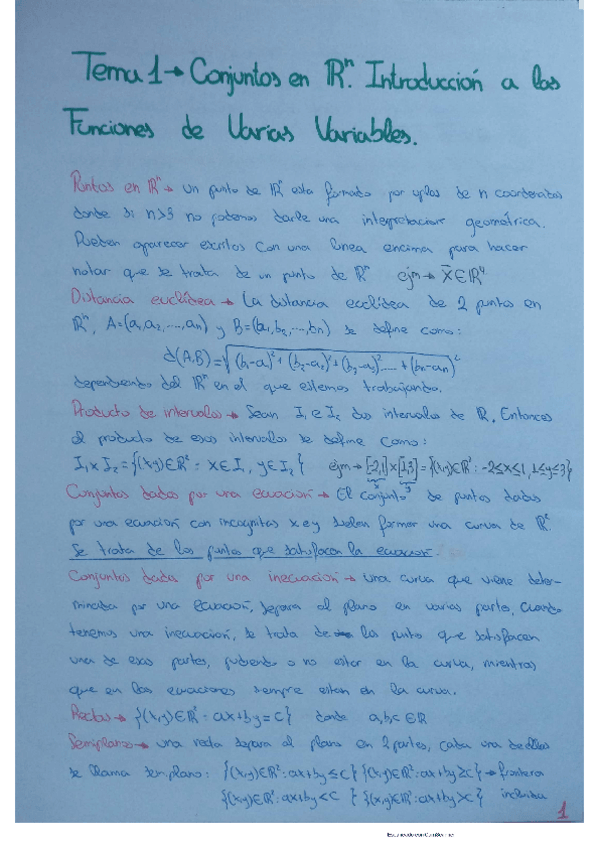 Tema 1 → Conjuntos en ℝⁿ. Introducción a las
Funciones de Varias Variables.
Puntos en ℝⁿ → un punto de ℝⁿ esta formado por uplas de n coordenadas
donde si n>3 no podemos darle una interpretacion geométrica.
Pueden aparecer escritos con una linea encima para hacer
notar que se trata de un punto de ℝⁿ ejm → x̄ ∈ ℝ⁴
Distancia euclídea → La distancia euclídea de 2 puntos en
ℝⁿ, A=(a₁,a₂,....,aₙ) y B=(b₁,b₂,...,bₙ) se define como:
d(A,B)=√((b₁-a₁)²+(b₂-a₂)²+(b₃-a₃)²......+(bₙ-aₙ)²)
dependiendo del ℝⁿ en el que estemos trabajando.
Producto de intervalos → Sean I₁ e I₂ dos intervalos de ℝ. Entonces
el producto de esos intervalos se define como:
I₁×I₂={(x,y)∈ℝ² : x∈I₁, y∈I₂} ejm → [-2,1]×[1,3]={(x,y)∈ℝ² : -2≤x≤1, 1≤y≤3}
x y
Conjuntos dados por una ecuación → El conjunto de puntos dados
por una ecuación con incognitas x e y suelen formar una curva de ℝ².
Se trata de los puntos que satisfacen la ecuación.
Conjuntos dada por una inecuación → una curva que viene deter-
minada por una ecuación, separa al plano en varias partes, cuando
tenemos una inecuación, se trata de los punto que satisfacen
una de esas partes, pudiendo o no estar en la curva, mientras
que en las ecuaciones siempre estan en la curva.
Rectas → {(x,y)∈ℝ² : ax+by=c} donde a,b,c∈ℝ
Semiplanos → una recta separa al plano en 2 partes, cada una de ellas
se llama semiplano: {(x,y)∈ℝ² : ax+by≤c} {(x,y)∈ℝ² : ax+by≥c} → frontera
{(x,y)∈ℝ² : ax+by<c} {(x,y)∈ℝ² : ax+by>c} incluida
1
Escaneado con CamScanner